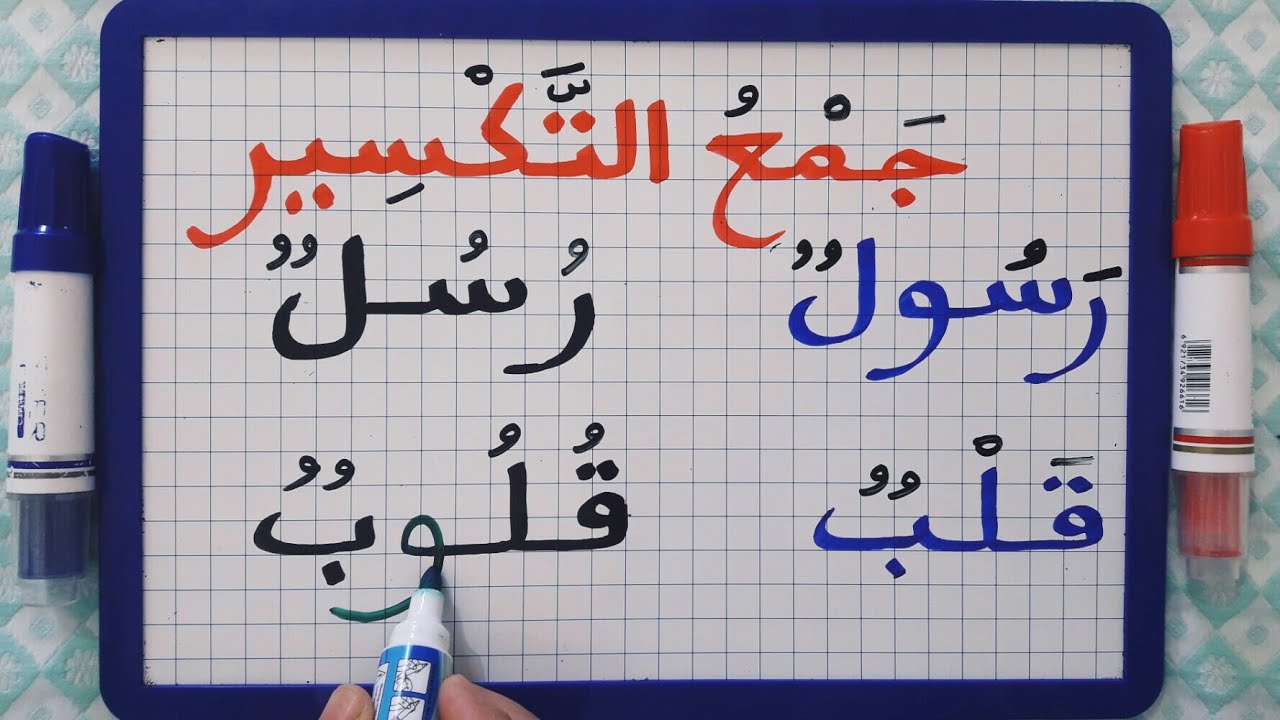 جَمْعُ التَّكْسِيرِ
رَسُولٌ رُسُلٌ
قَلْبٌ قُلُوبٌ